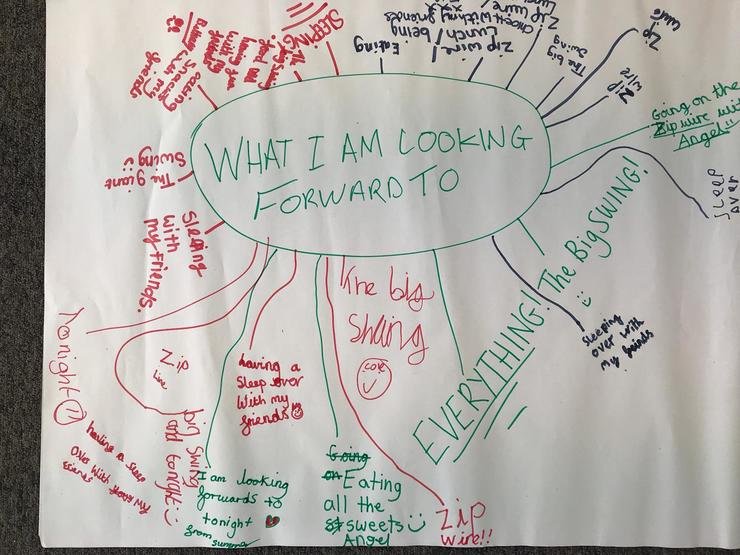 WHAT I AM LOOKING
FORWARD TO
SLEEPING
Eating
Zip wire /
Lunch / being
with my friends
Zip wire
The big
swing
Zip
wire
Zip
wire
Going on the
Zip wire with
Angel
SLEEP
OVER
The Big SWING!
sleeping
over with
my friends
EVERYTHING!
zip
wire!!
the big
swing
Going
on Eating
all the
st sweets
Angel
having a
sleep over
with my
friends
I am looking
forwards to
tonight
from summer
big swing
and tonight
Zip
line
Tonight
having a sleep
over with
my
friends
Sleping
with
my friends.
The giant
Swing
eating
Snacks
with my
friends